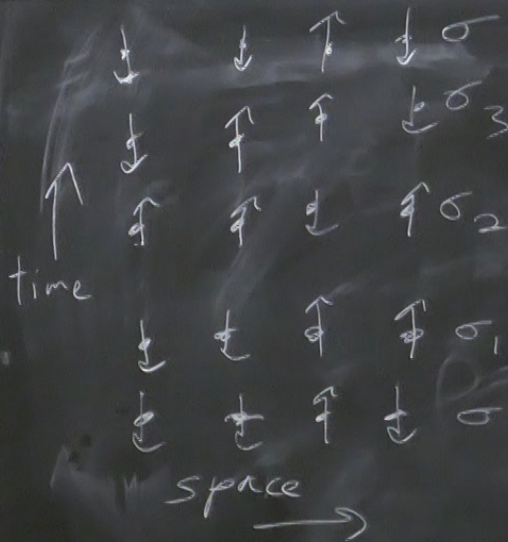 σ
σ3
σ2
time
σ1
σ
space